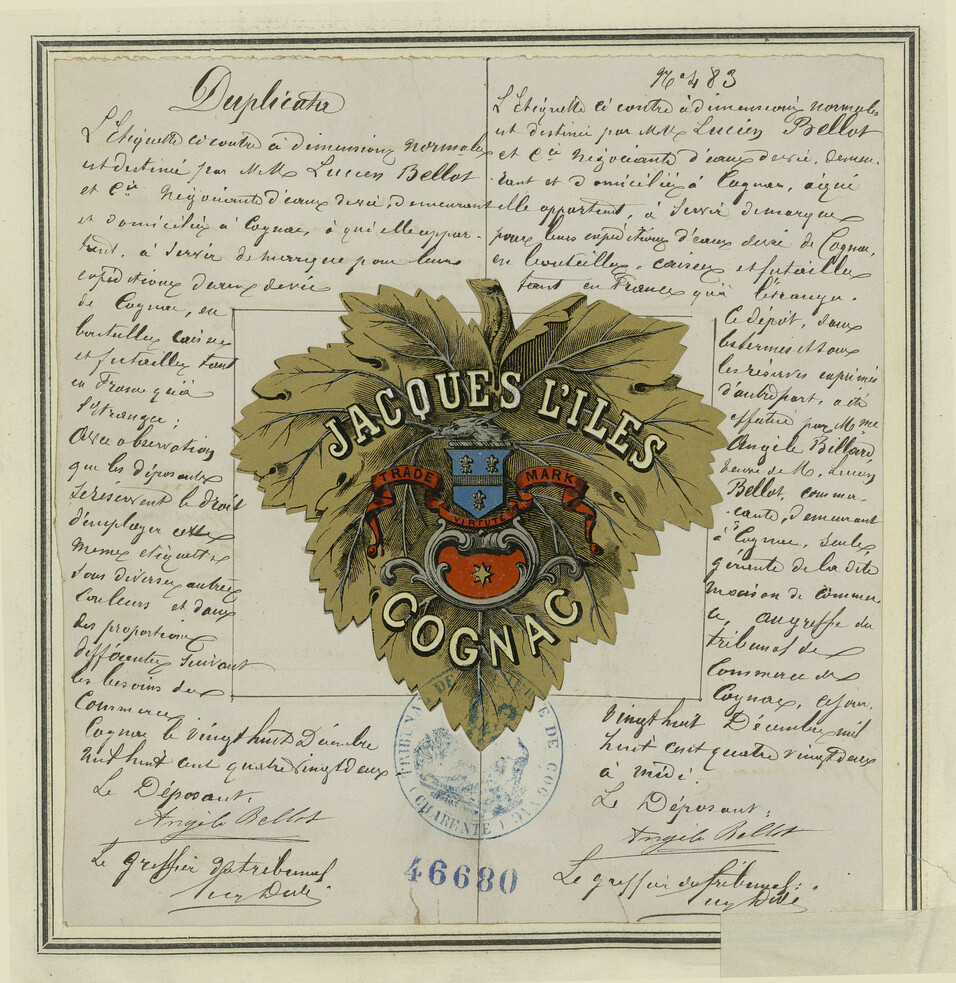 Duplicata
L'étiquette ci contre à dimensions normales
est destinée par MM. Lucien Bellot
et Cie Négociants d'eaux de vie, demeurant
et domiciliés à Cognac, à qui elle appar-
tient, à servir de marque pour leurs
expéditions d'eaux de vie
de Cognac, en
bouteilles caisses
et futailles tant
en France qu'à
l'étranger;
Avec observation
que les déposants
se réservent le droit
d'employer cette
même étiquette
sous diverses autres
couleurs et dans
des proportions
différentes suivant
les besoins du
Commerce
Cognac le vingt huit Décembre
mil huit cent quatre vingt deux
Le Déposant:
Angèle Bellot
Le greffier du tribunal
No 483
L'étiquette ci contre à dimensions normales
est destinée par MM. Lucien Bellot
et Cie Négociants d'eaux de vie, demeu-
rant et domiciliés à Cognac, à qui
elle appartient, à servir de marque
pour leurs expéditions d'eaux de vie de Cognac,
en bouteilles, caisses et futailles
tant en France qu'à l'étranger.
Ce dépôt, sous
les termes et sous
les réserves exprimés
d'autre part, a été
effectué par Mme
Angèle Billard
veuve de M. Lucien
Bellot, comme-
rçante, demeurant
à Cognac, seule
gérante de la dite
maison de commer-
ce, au greffe du
tribunal de
Commerce de
Cognac, ce jour
vingt huit Décembre mil
huit cent quatre vingt deux
à midi.
Le Déposant:
Angèle Bellot
Le greffier du tribunal:
JACQUES L'ILES
TRADE MARK
VIRTUTE
COGNAC
TRIBUNAL DE COMMERCE DE COGNAC
(CHARENTE)
46680